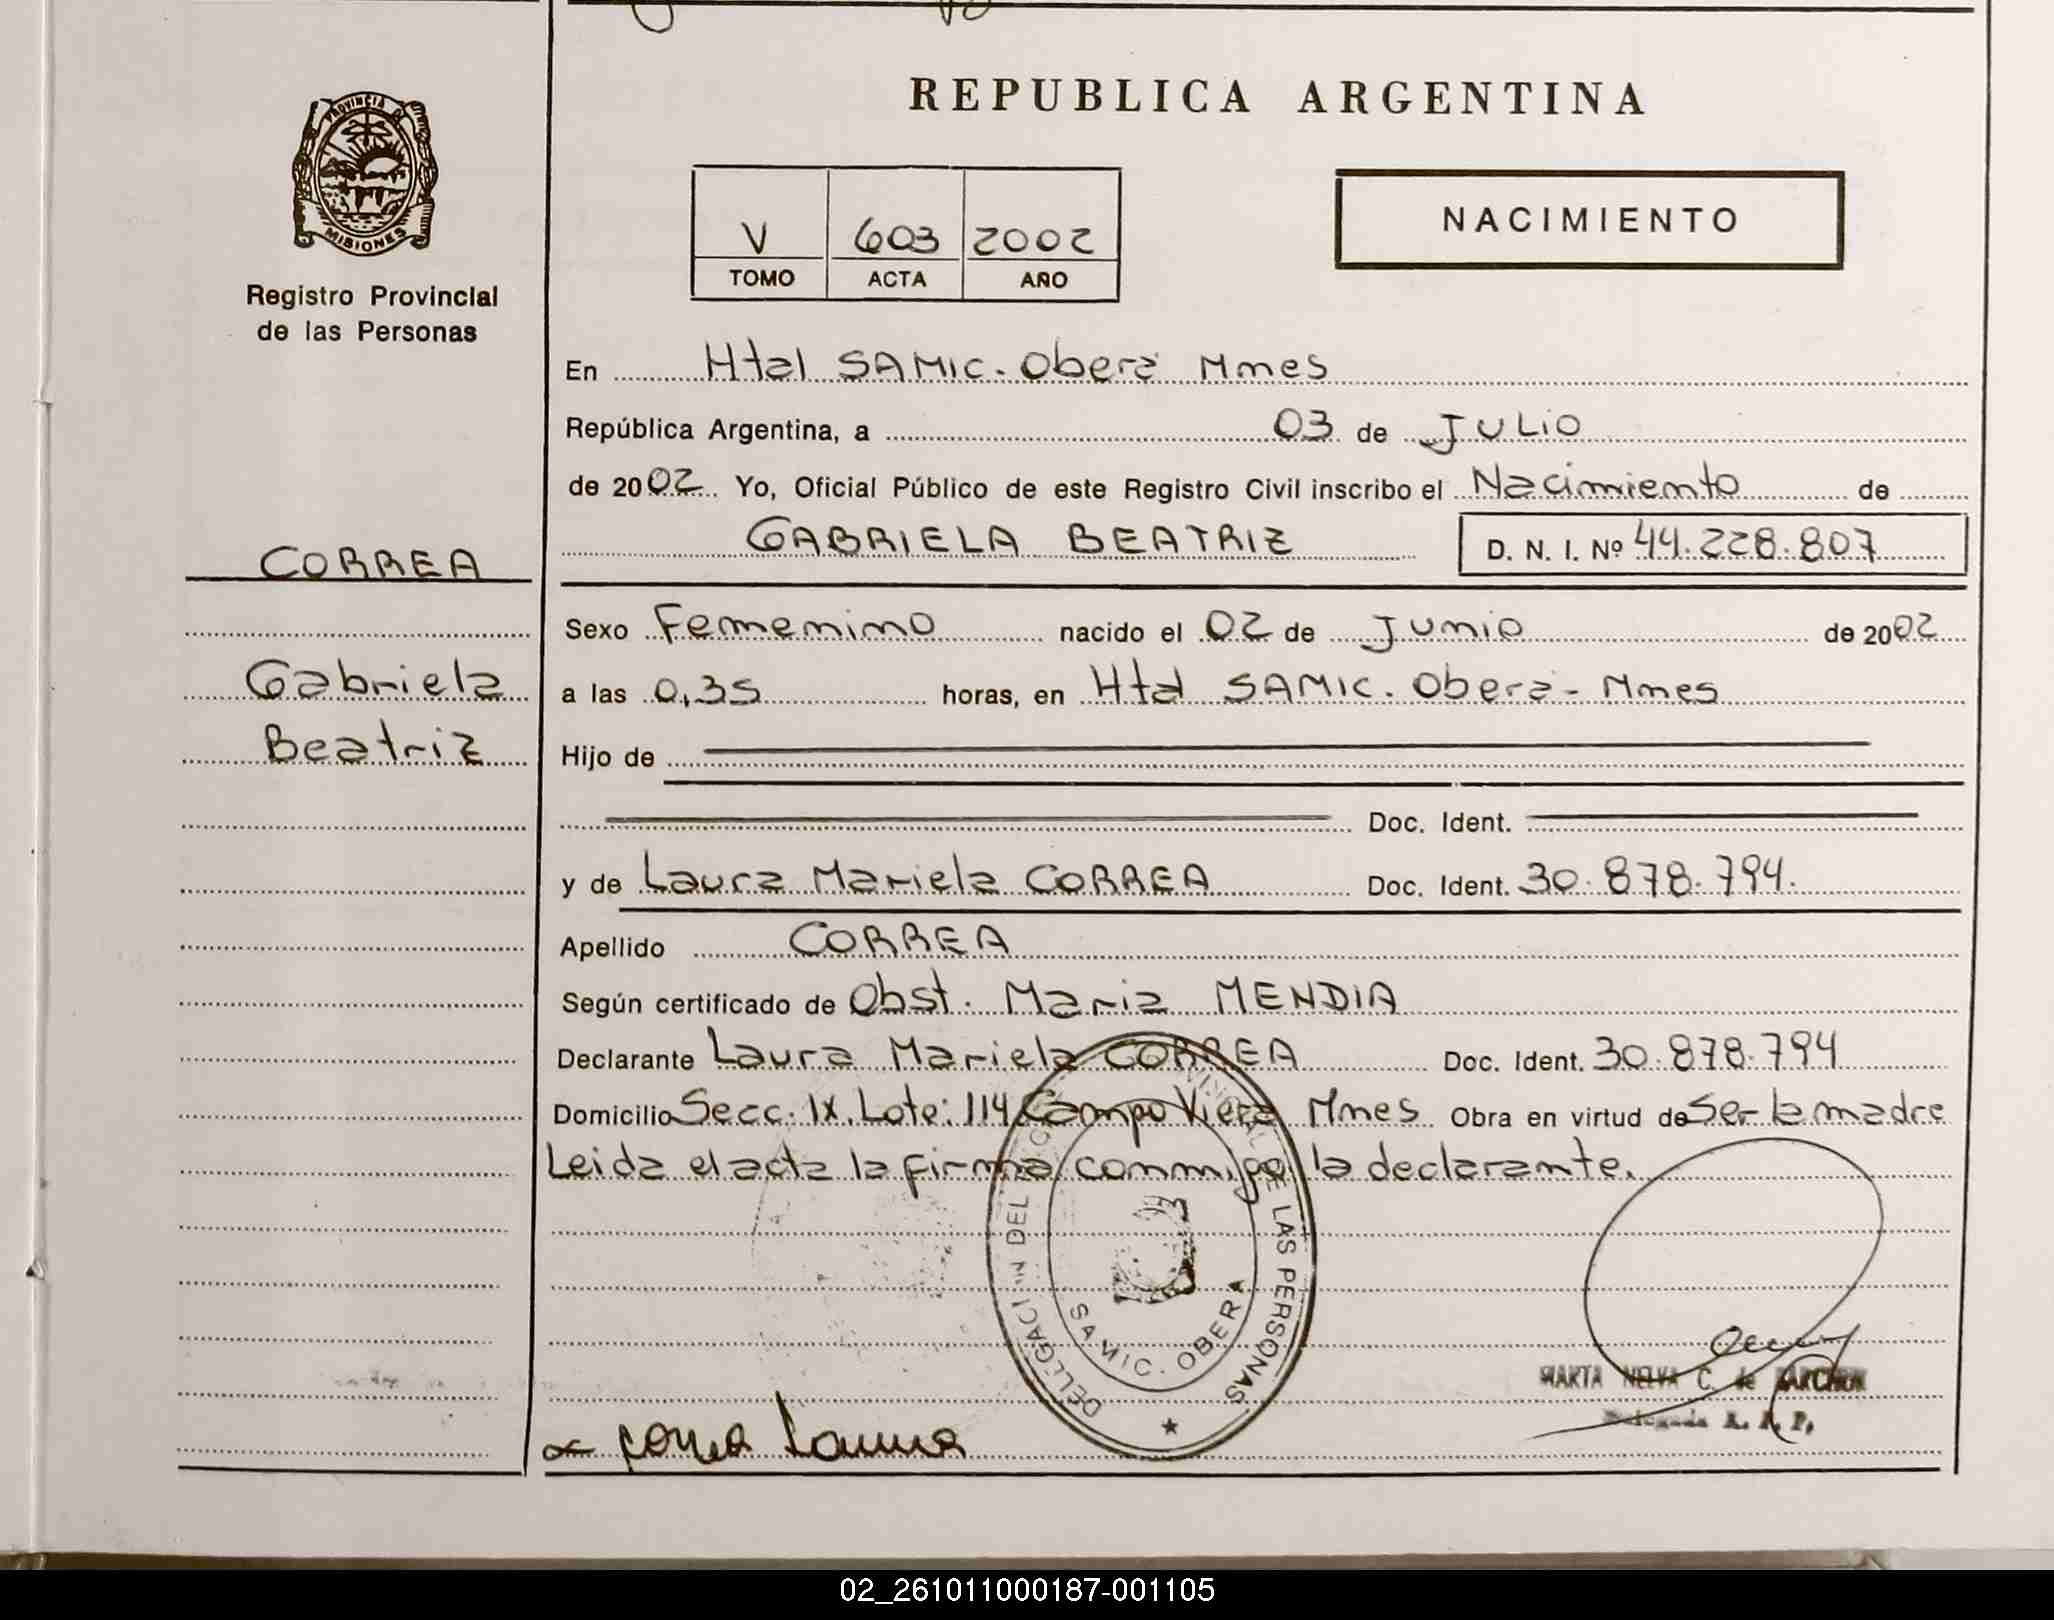 REPUBLICA ARGENTINA
PROVINCIA DE
MISIONES
Registro Provincial
de las Personas
V 603 2002
TOMO ACTA AÑO
NACIMIENTO
En Htal SAMIC. Oberá Mnes
República Argentina, a 03 de JULIO
de 2002 Yo, Oficial Público de este Registro Civil inscribo el Nacimiento de
GABRIELA BEATRIZ D. N. I. Nº 44.228.807
CORREA
Gabriela
Beatriz
Sexo Femenino nacido el 02 de Junio de 2002
a las 0,35 horas, en Htal SAMIC. Oberá - Mnes
Hijo de
Doc. Ident.
y de Laura Mariela CORREA Doc. Ident. 30.878.794.
Apellido CORREA
Según certificado de Obst. Maria MENDIA
Declarante Laura Mariela CORREA Doc. Ident. 30.878.794
Domicilio Secc. IX. Lote: 114 Campo Viera Mnes Obra en virtud de Ser la madre
Leida el acta la firma conmigo la declarante.
DE LAS PERSONAS
SAMIC. OBERA
MARTA NELVA C. de
Delegada R. P. P.
Correa Laura
02_261011000187-001105